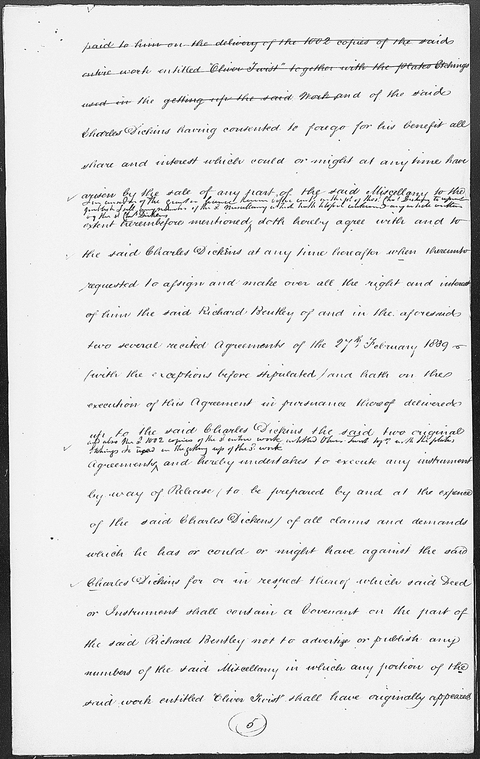 paid to him on the delivery of the 1002 copies of the said
entire work entitled "Oliver Twist" together with the plates Etchings
used in the getting up the said Work and of the said
Charles Dickens having consented to forego for his benefit all
share and interest which could or might at any time have
arisen by the sale of any part of the said Miscellany to the
in consideration of the
of the Miscellany which
by the sd. Chas. Dickens
extent hereinbefore mentioned, doth hereby agree with and to
the said Charles Dickens at any time hereafter when thereunto
requested to assign and make over all the right and interest
of him the said Richard Bentley of and in the aforesaid
two several recited Agreements of the 27th February 1839
(with the exceptions before stipulated) and hath on the
execution of this Agreement in pursuance thereof delivered
up to the said Charles Dickens the said two original
and also the sd. 1002 copies of the sd. entire work entitled Oliver Twist togr. with the plates
Etchings &c used in the getting up of the sd. work
Agreements, and hereby undertakes to execute any instrument
by way of Release (to be prepared by and at the expence
of the said Charles Dickens) of all claims and demands
which he has or could or might have against the said
Charles Dickens for or in respect thereof which said Deed
or Instrument shall contain a Covenant on the part of
the said Richard Bentley not to advertize or publish any
numbers of the said Miscellany in which any portion of the
said work entitled "Oliver Twist" shall have originally appeared
5